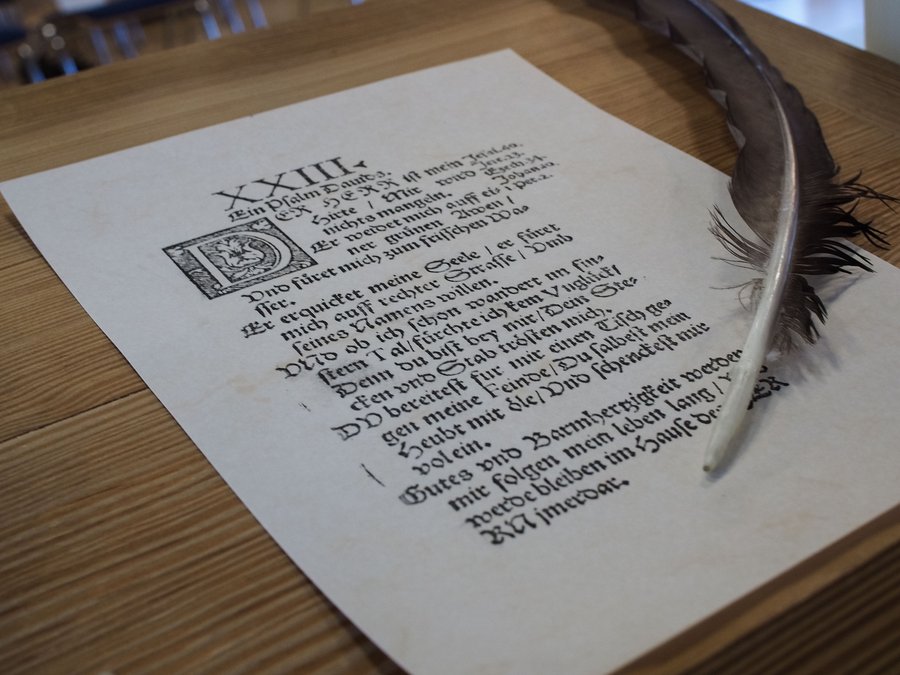 XXIII.
Ein Psalm Dauids.
DER HERR ist mein
Hirte / Mir wird
nichts mangeln.
Er weidet mich auff ei-
ner grünen Awen /
Vnd füret mich zum frisschen Was
sser.
Er erquicket meine Seele / er füret
mich auff rechter Strasse / Vmb
seines Namens willen.
VNd ob ich schon wandert im fin-
stern Tal / fürchte ich kein Vnglück /
Denn du bist bey mir / Dein Ste-
cken vnd Stab trösten mich.
DV bereitest fur mir einen Tisch ge-
gen meine Feinde / Du salbest mein
Heubt mit öle / Vnd schenckest mir
vol ein.
Gutes vnd Barmhertzigkeit werden
mir folgen mein leben lang /
werde bleiben im Hause des
RN jmerdar.
Jesai.40.
Jere.23.
Ezech.34.
Johan.10.
1.Pet.2.